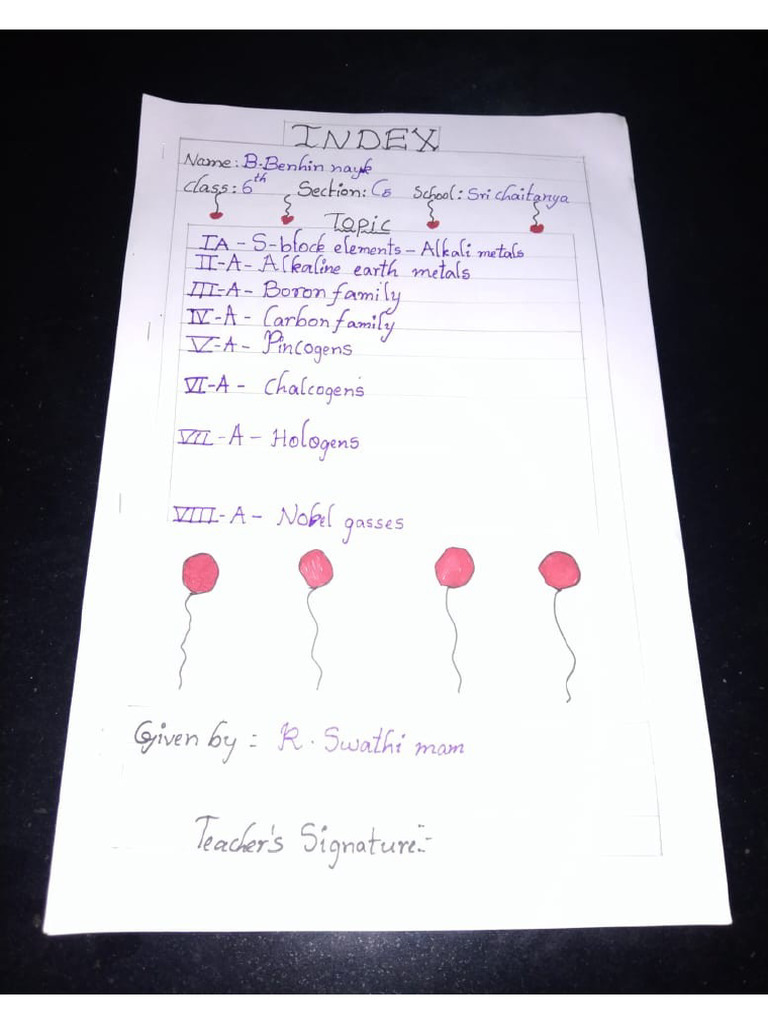 INDEX
Name: B.Benhin nayk
class: 6th Section: C5 School: Sri chaitanya
Topic
IA - S-block elements - Alkali metals
II-A - Alkaline earth metals
III-A - Boron family
IV-A - Carbon family
V-A - Pincogens
VI-A - Chalcogens
VII-A - Hologens
VIII-A - Nobel gasses
Given by : R. Swathi mam
Teacher's Signature:-